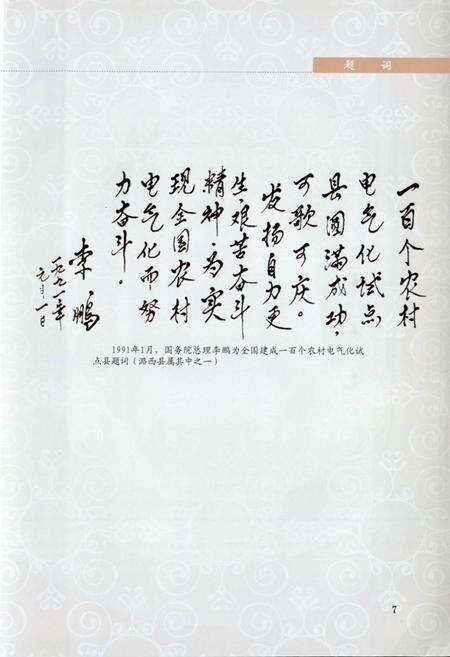 题 词
一百个农村
电气化试点
县圆满成功，
可歌可庆。
发扬自力更
生，艰苦奋斗
精神，为实
现全国农村
电气化而努
力奋斗。
李鹏
一九九一年
元月一日
1991年1月，国务院总理李鹏为全国建成一百个农村电气化试
点县题词（潞西县属其中之一）
7